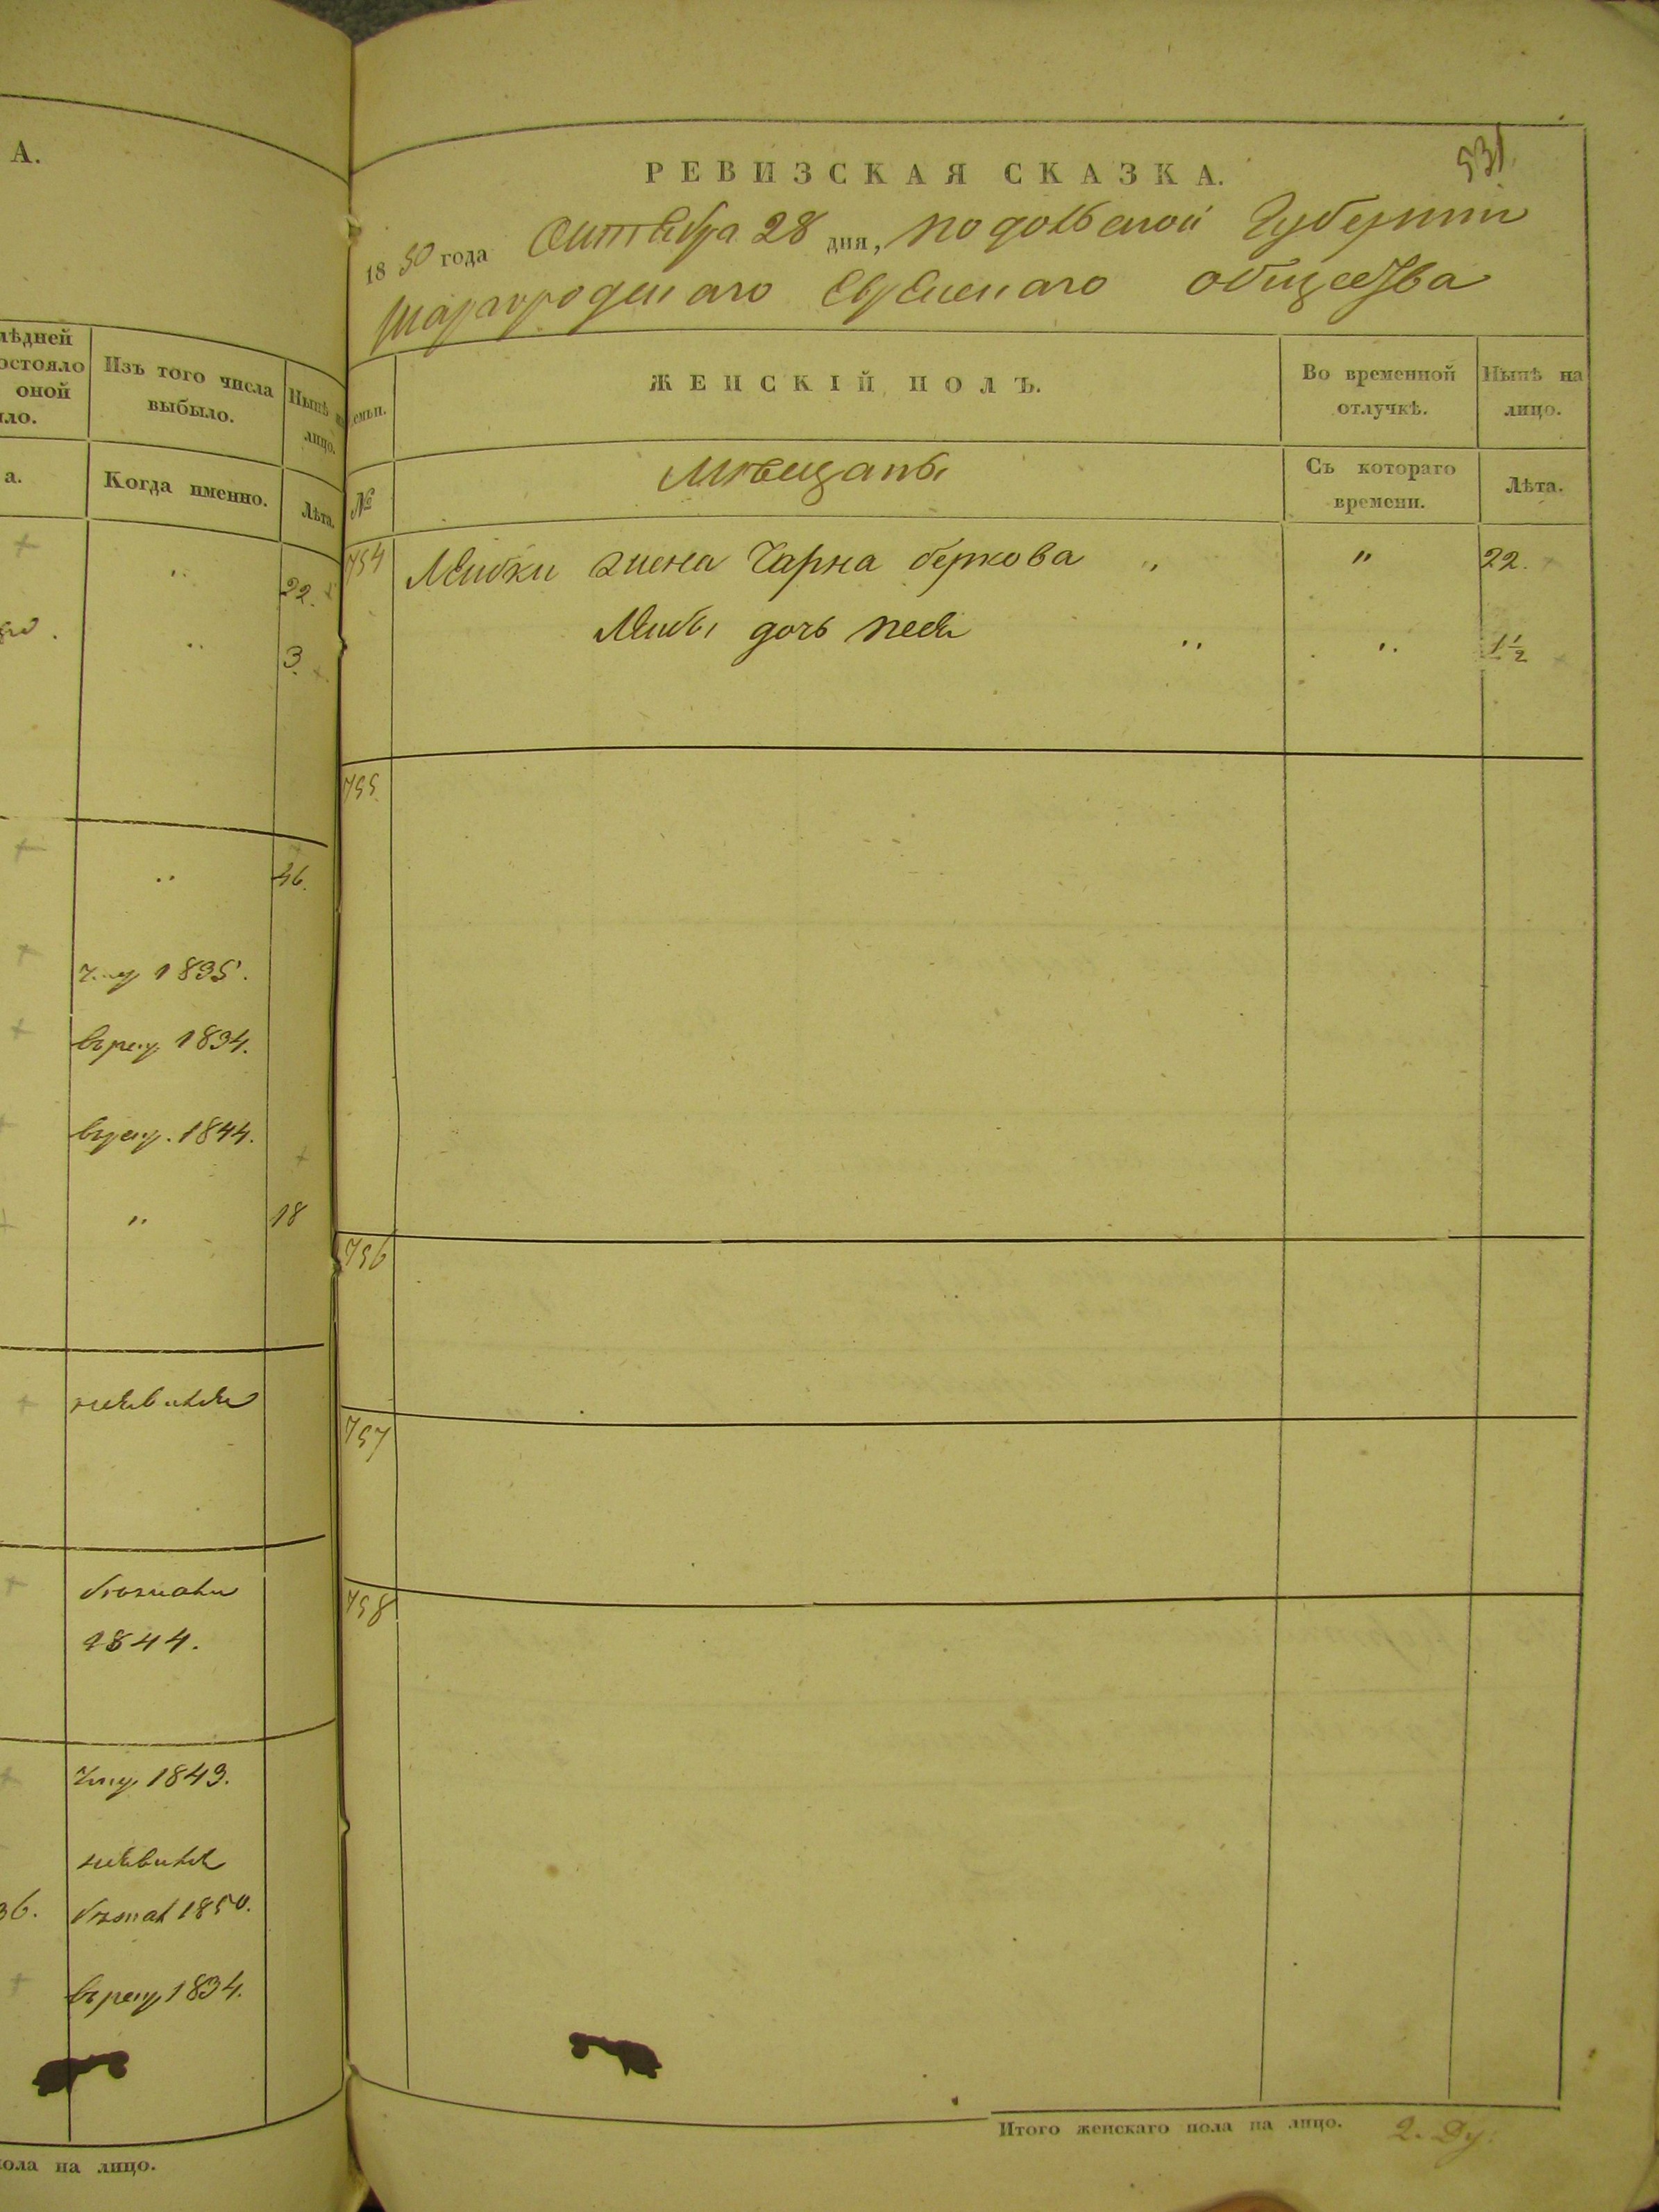 А.
лѣдней
остояло
оной
ло.
Изъ того числа
выбыло.
Нынѣ на
лицо.
а.
Когда именно.
Лѣта.
22.
3.
46.
1835.
1834.
1844.
18
1844.
1843.
36.
1850.
1834.
пола на лицо.
931.
РЕВИЗСКАЯ СКАЗКА.
1850 года Октября 28 дня, Подольской Губернии
Шаргородскаго Еврейскаго общества
Семьи.
ЖЕНСКІЙ ПОЛЪ.
Во временной
отлучкѣ.
Нынѣ на
лицо.
№
Мѣщаны
Съ котораго
времени.
Лѣта.
754 Лейбки жена Чарна Беркова " " 22.
Лейбы дочь Песя " " 1½
755
756
757
758
Итого женскаго пола на лицо. 2. Ду.